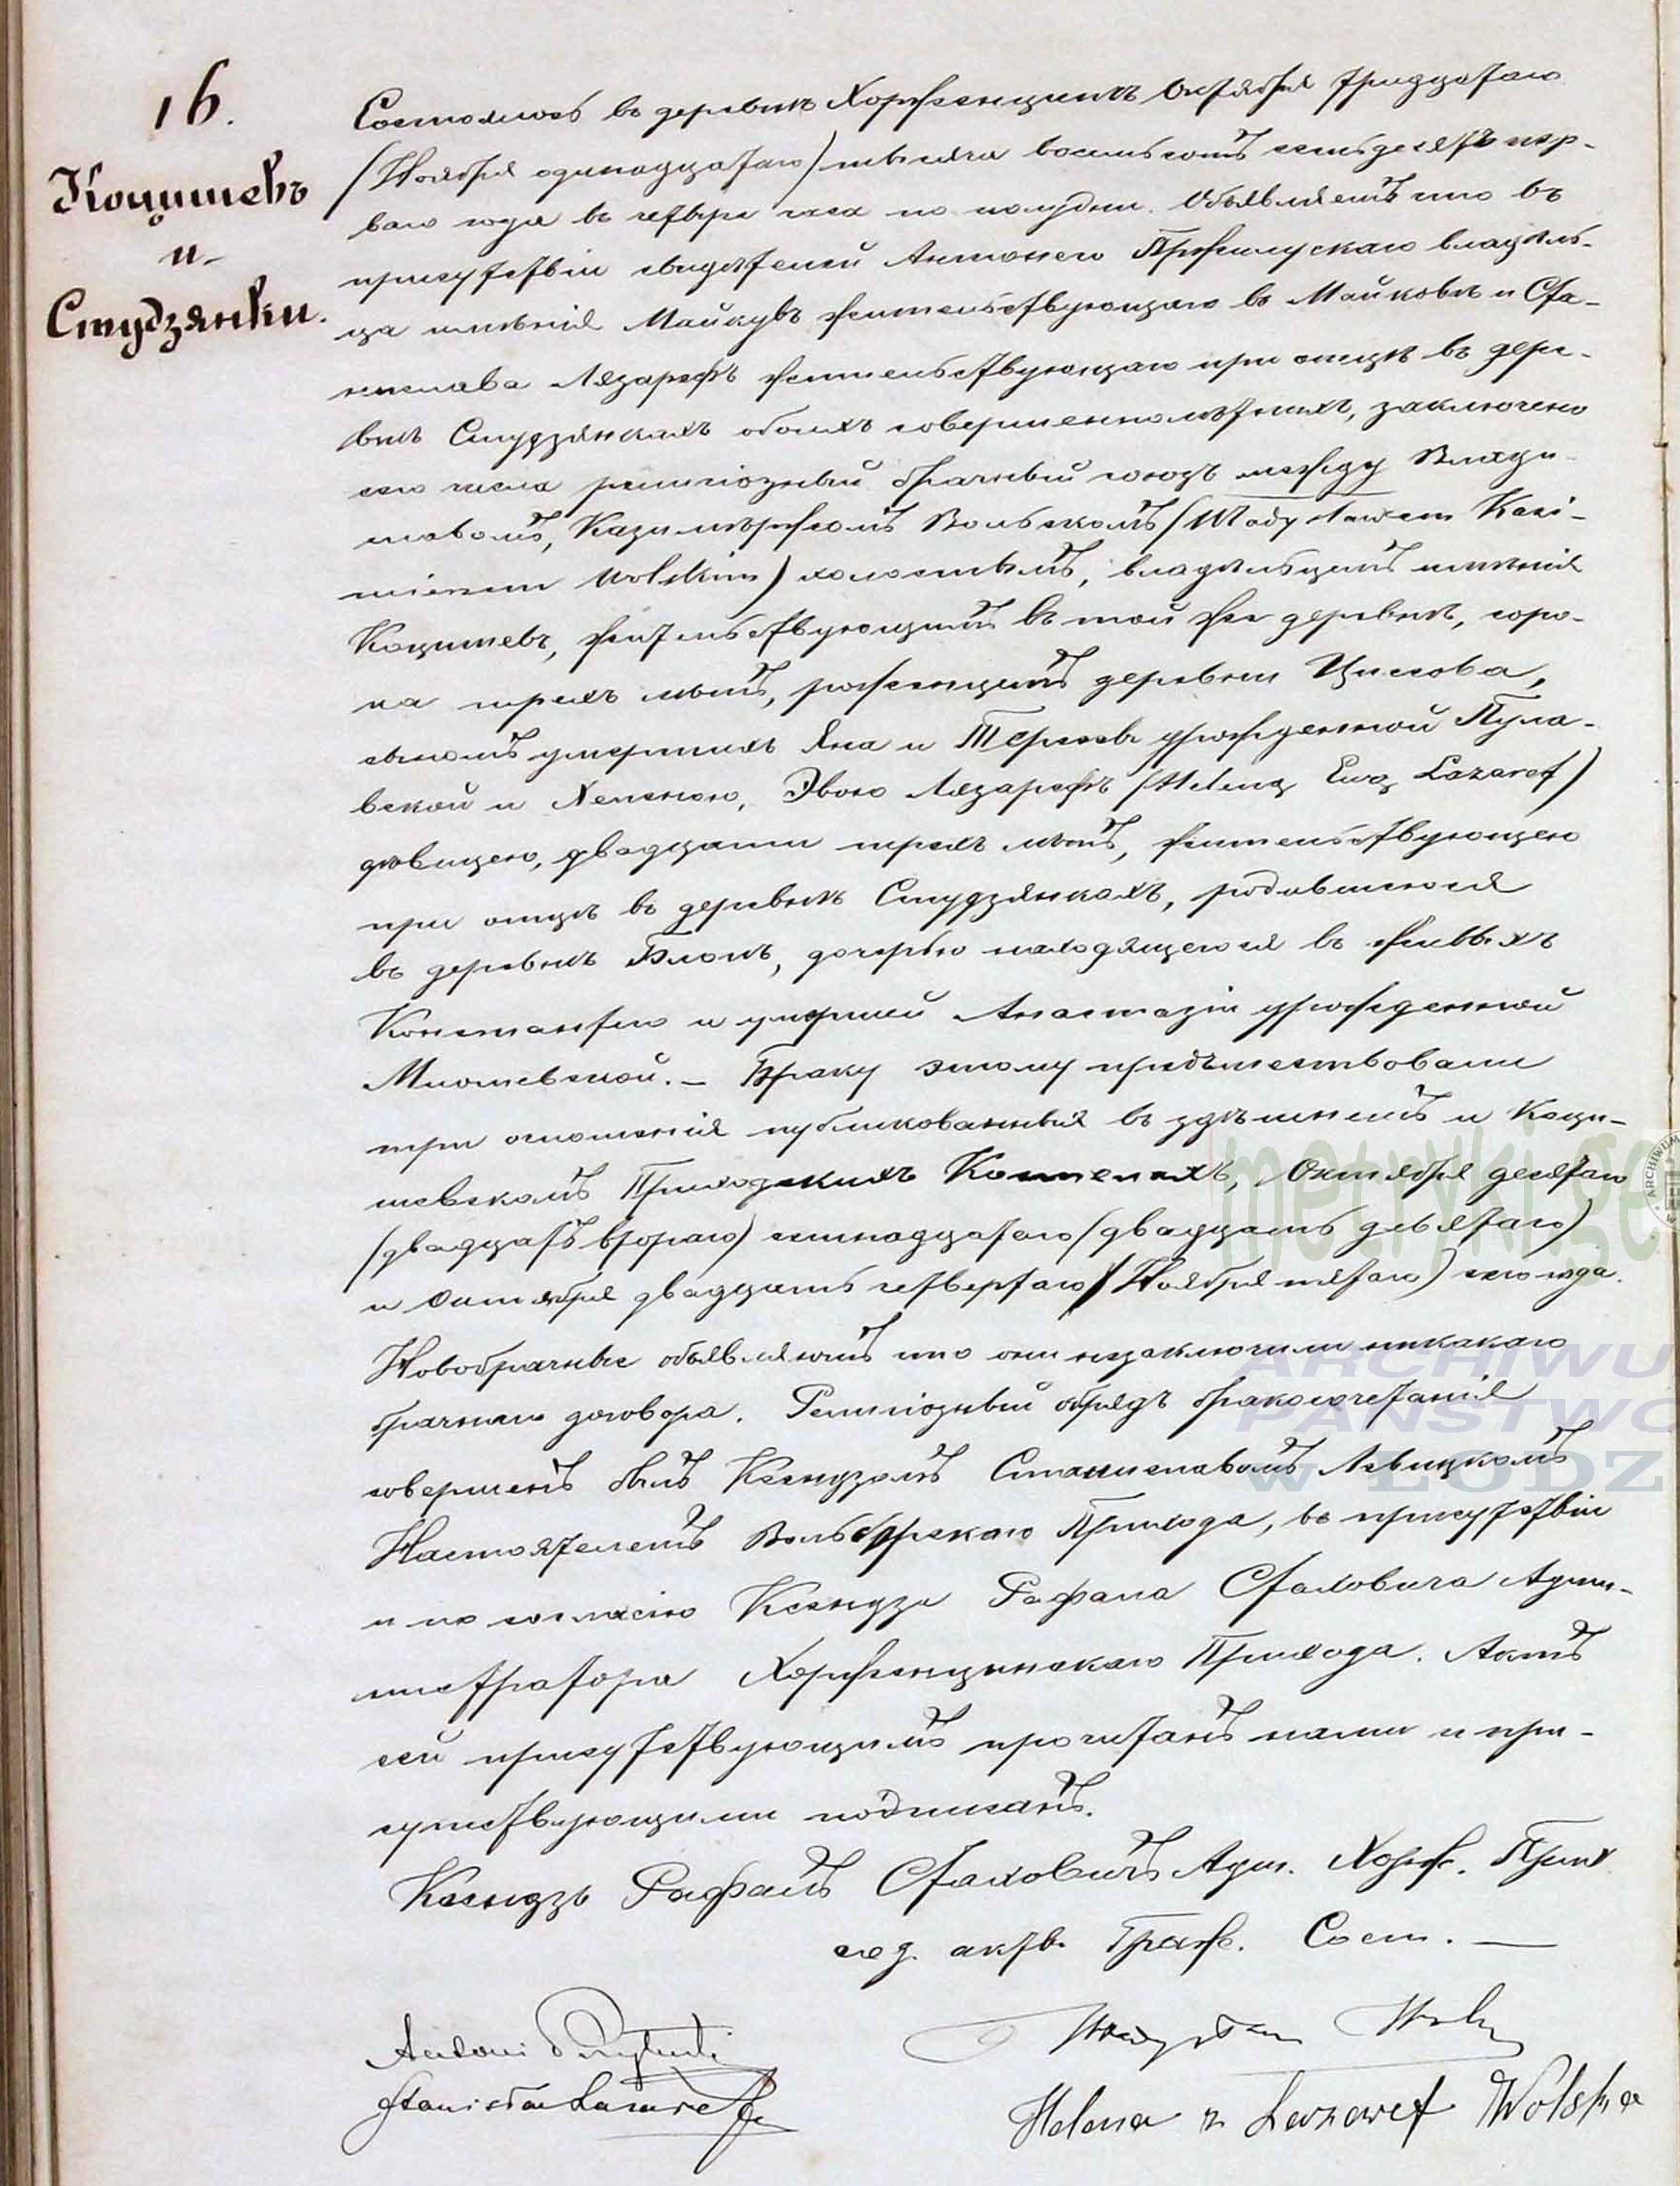 16.
Коцишевъ
и
Студзянки.
Состоялось въ деревнѣ Хорженцинѣ Октября тридцатаго
(Ноября одинадцатаго) тысяча восемьсотъ семьдесятъ пер-
ваго года въ четыре часа по полудни. Объявляемъ что въ
присутствіи свидѣтелей Антонего Пржилускаго владѣль-
ца имѣнія Майкувъ жительствующаго въ Майковѣ и Ста-
нислава Лязарефъ жительствующаго при отцѣ въ дере-
внѣ Студзянкахъ обоихъ совершеннолѣтнихъ, заключено
сего числа религіозный брачный союзъ между Влади-
славомъ, Казимѣржемъ Вольскомъ (Władysławem Kazi-
mierzem Wolskim) холостымъ, владѣльцемъ имѣнія
Коцишевъ, жительствующимъ въ той же деревнѣ, соро-
ка трехъ лѣтъ, родженцемъ деревни Цисова,
сыномъ умершихъ Яна и Терезы урожденной Пула-
вской и Хеленою, Эвою Лязарефъ (Heleną Ewą Lazaref)
дѣвицею, двадцати трехъ лѣтъ, жительствующею
при отцѣ въ деревнѣ Студзянкахъ, родившеюся
въ деревнѣ Блонѣ, дочерью находящегося въ живыхъ
Константего и умершей Анастазіи урожденной
Милошевской. – Браку этому предшествовали
три оглошенія публикованныя въ здѣшнемъ и Коци-
шевскомъ Приходскихъ Костелахъ, Октября десятаго
(двадцать втораго) семнадцатаго (двадцать девятаго)
и Октября двадцать четвертаго (Ноября пятаго) сего года.
Новобрачные объявляютъ что они незаключили никакаго
брачнаго договора. Религіозный обрядъ бракосочетанія
совершенъ былъ Ксендзомъ Станиславомъ Левицкомъ
Настоятелемъ Вольборскаго Прихода, въ присутствіи
и по согласію Ксендза Рафала Стаховича Адми-
нистратора Хорженцинскаго Прихода. Актъ
сей присутствующимъ прочитанъ нами и при-
сутствующими подписанъ.
Ксендзъ Рафалъ Стаховичъ Адм. Хорж. Прих
сод. акты Граж. Сост. —
Antoni Przyłuski
Władysław Wolski
Stanisław Lazaref
Helena z Lazaref Wolska
metryki.ge
ARCHIWU
PAŃSTWO
w ŁODZ